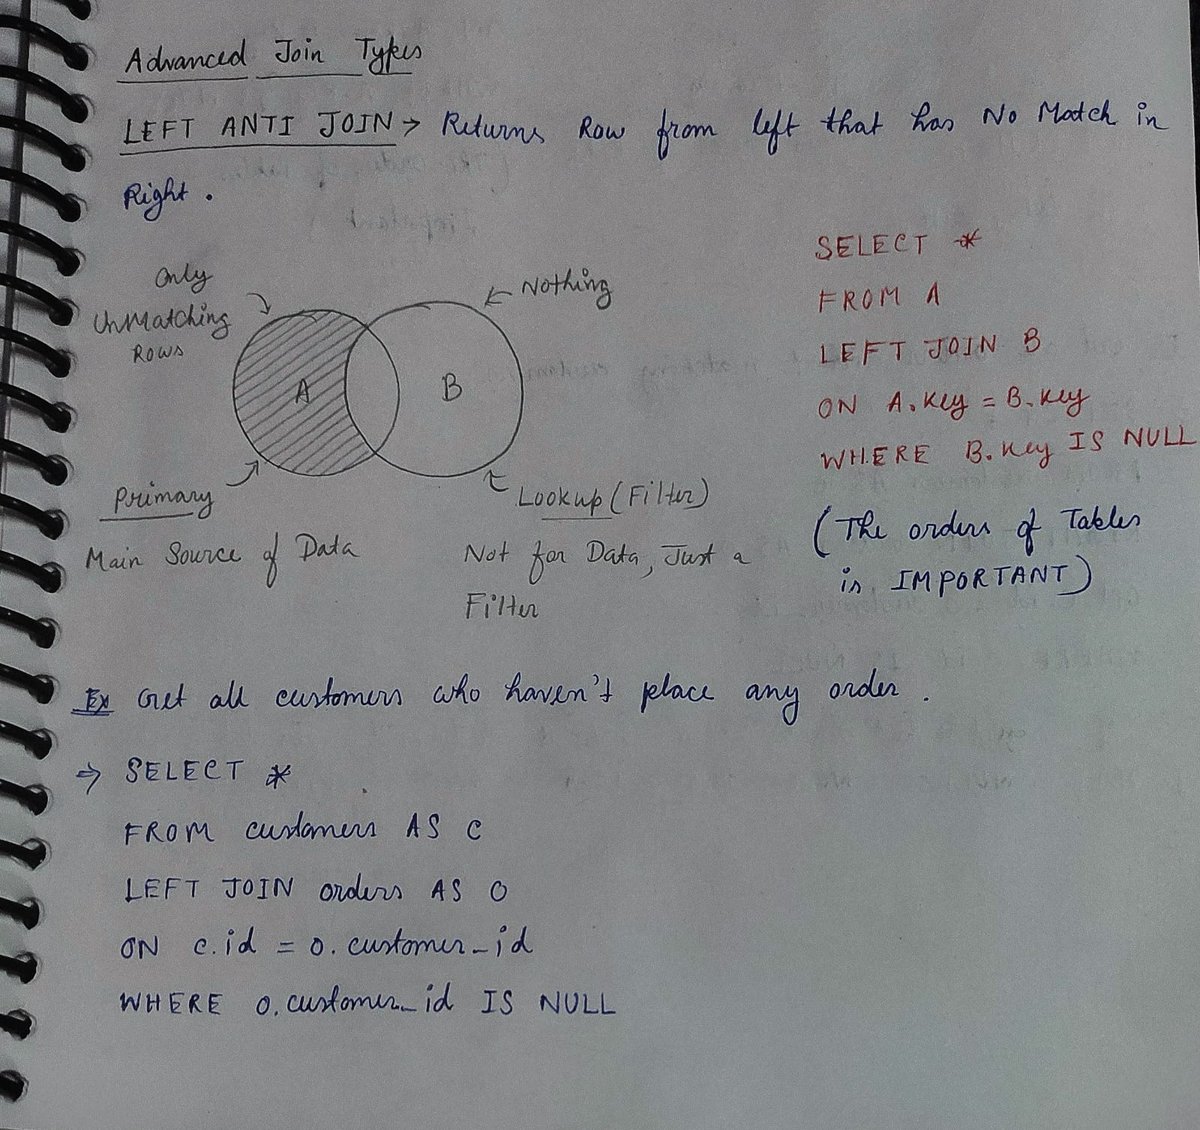 Advanced Join Types
LEFT ANTI JOIN → Returns Row from left that has No Match in
Right.
Only
UnMatching
Rows
Nothing
A
B
Primary
Main Source of Data
Lookup (Filter)
Not for Data, Just a
Filter
SELECT *
FROM A
LEFT JOIN B
ON A.Key = B.Key
WHERE B.Key IS NULL
(The orders of Tables
is IMPORTANT)
Ex Get all customers who haven't place any order.
⇒ SELECT *
FROM customers AS C
LEFT JOIN orders AS O
ON c.id = o.customer_id
WHERE o.customer_id IS NULL